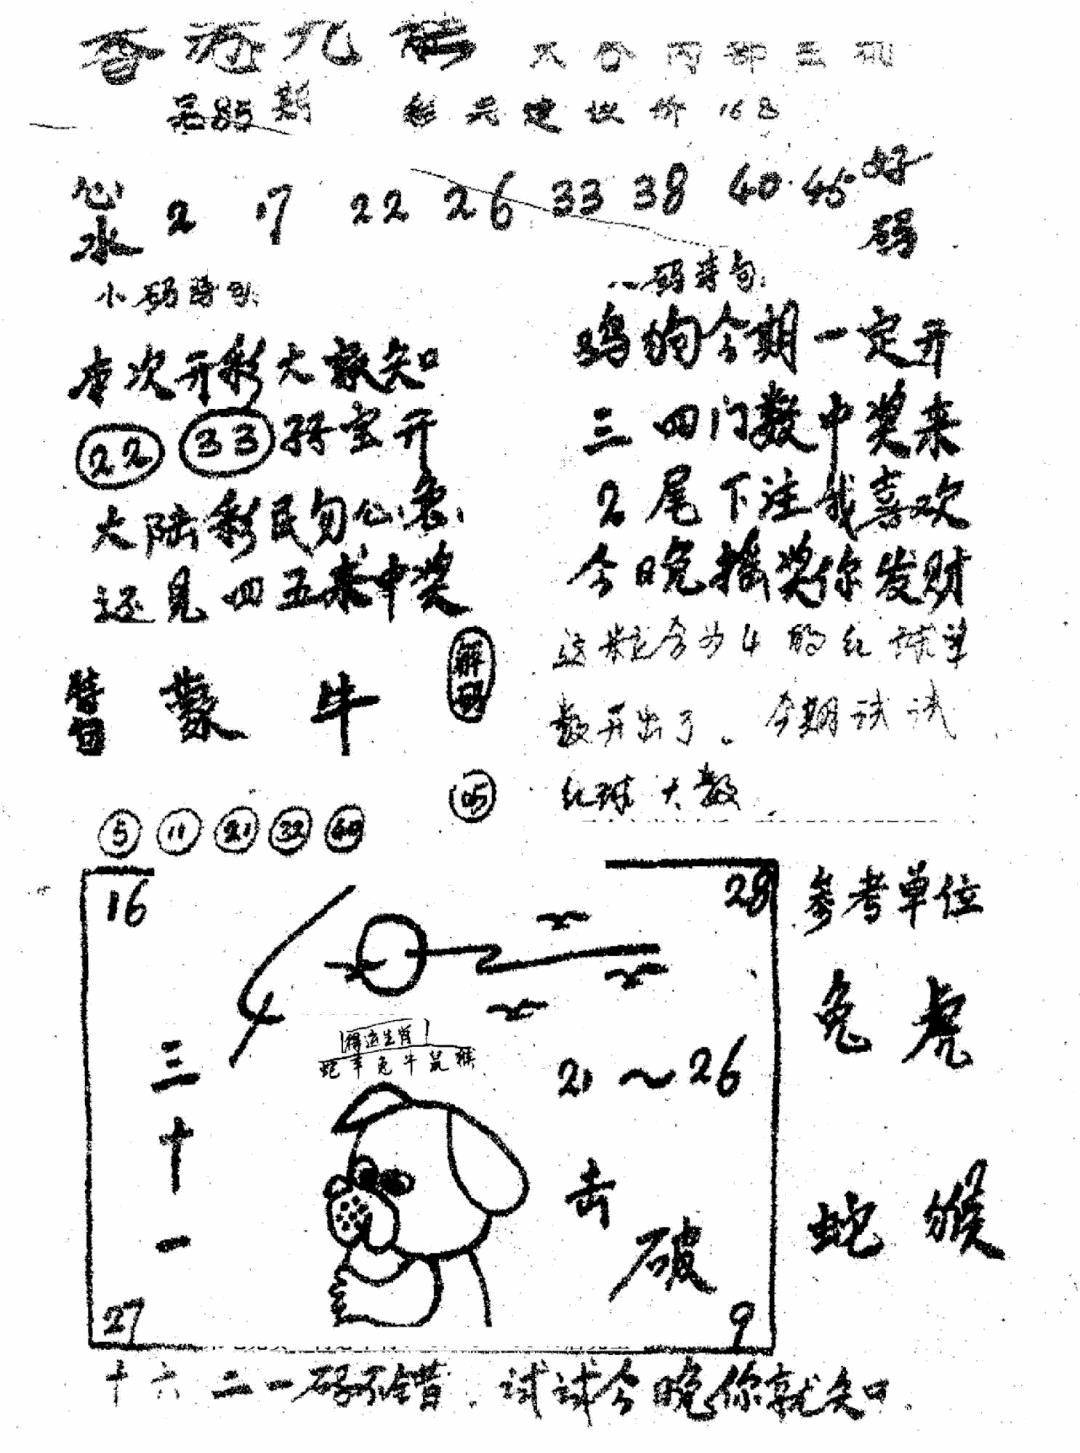 香港九龍
第85期
心水 2 17 22 26 33 38 40 45 好码
小码诗句:
本次开彩大家知
22 33 特定开
大陆彩民勿心急
还见四五来中奖
特句 蒙 牛 解码
5 11 21 32 49 05
八码诗句:
鸡狗今期一定开
三四门数中奖来
2尾下注我喜欢
今晚摇奖你发财
这粒合为4的红球单
数开出了。今期试试
红球大数
16 28
4
得道生肖
蛇羊兔牛鼠猴
三十一
21～26
击破
27 9
参考单位
兔 虎
蛇 猴
十六二一码不错.试试今晚你就知.